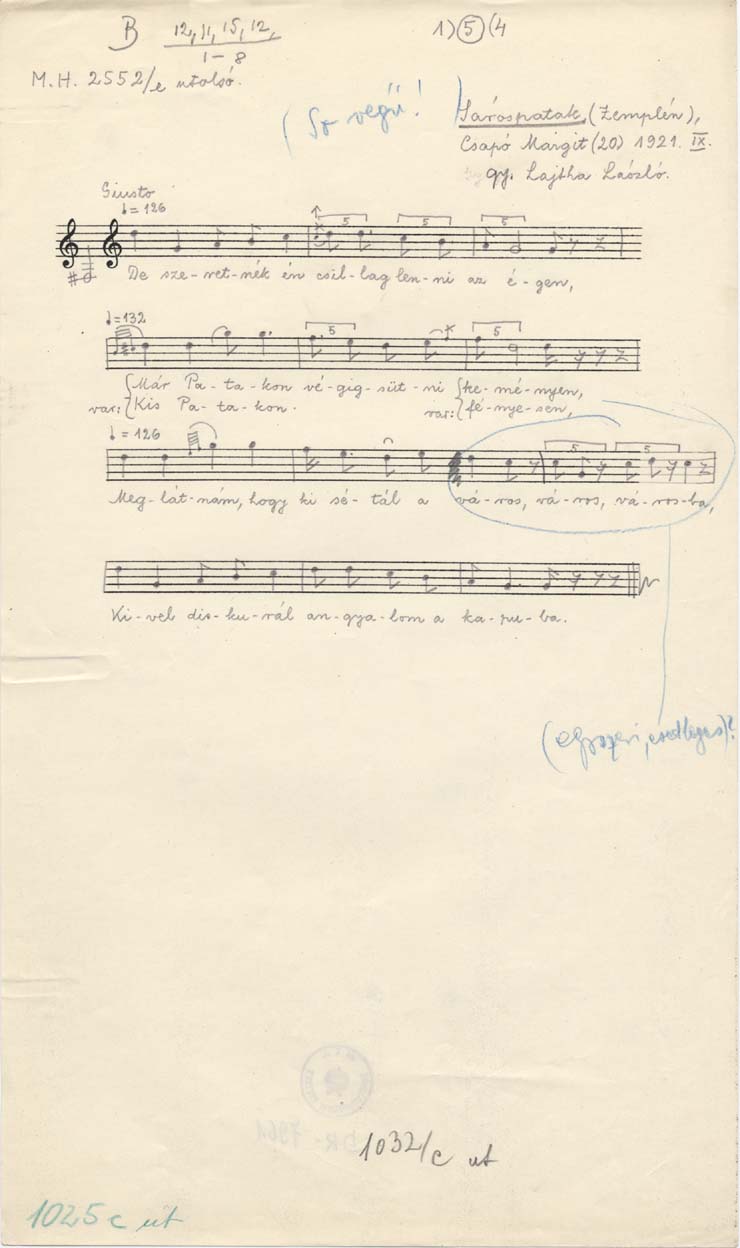 B 12, 11, 15, 12,
1 – 8
1) 5 (4
M.H. 2552/e utolsó.
(So végű!)
Sárospatak, (Zemplén),
Csapó Margit (20) 1921. IX.
gy. Lajtha László.
Giusto
♩= 126
5 5 5
De sze-ret-nék én csil-lag len-ni az é-gen,
♩=132
5 5
Már Pa-ta-kon vé-gig-süt-ni ke-mé-nyen,
var: Kis Pa-ta-kon. var: fé-nye-sen,
♩= 126
5 5
Meg-lát-nám, hogy ki sé-tál a vá-ros, vá-ros, vá-ros-ba,
Ki-vel dis-ku-rál an-gya-lom a ka-pu-ba.
(egyszeri, esetleges)?
1032/c ut
1025 c ut